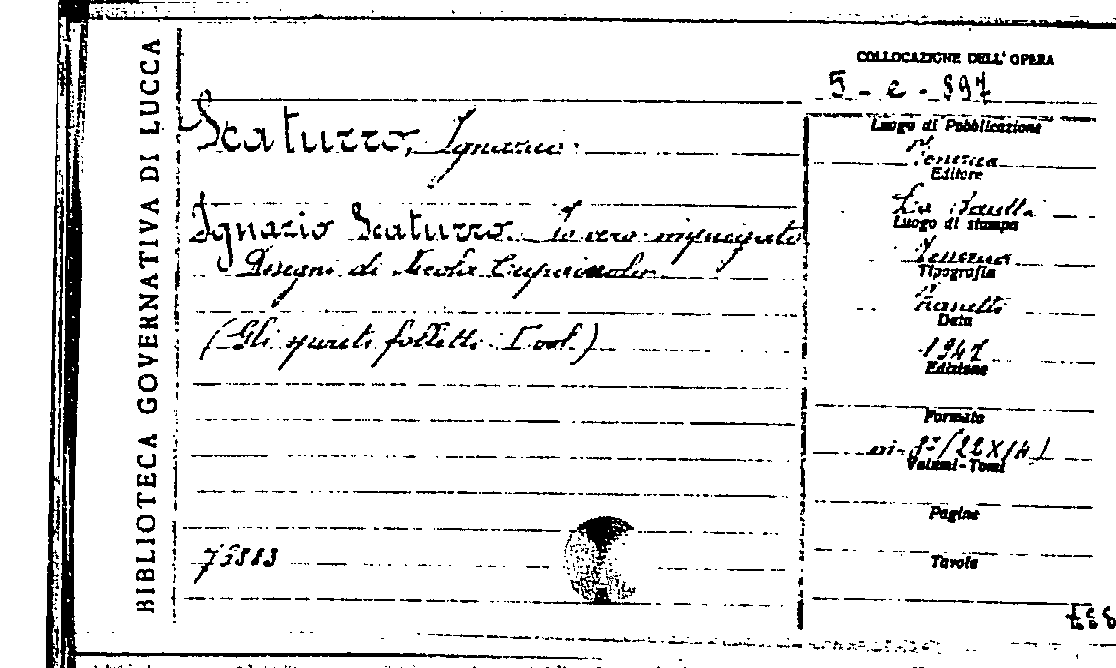 BIBLIOTECA GOVERNATIVA DI LUCCA
COLLOCAZIONE DELL' OPERA
5 - e - 897
Scaturro, Ignazio.
Ignazio Scaturro. Io ero impiegato
Disegni di Nicola
(Gli spiriti folletti. Coll.)
73883
Luogo di Pubblicazione
Venezia
Editore
La
Luogo di stampa
Venezia
Tipografia
Data
1947
Edizione
Formato
in-8° (22X14)
Volumi-Tomi
Pagine
Tavole